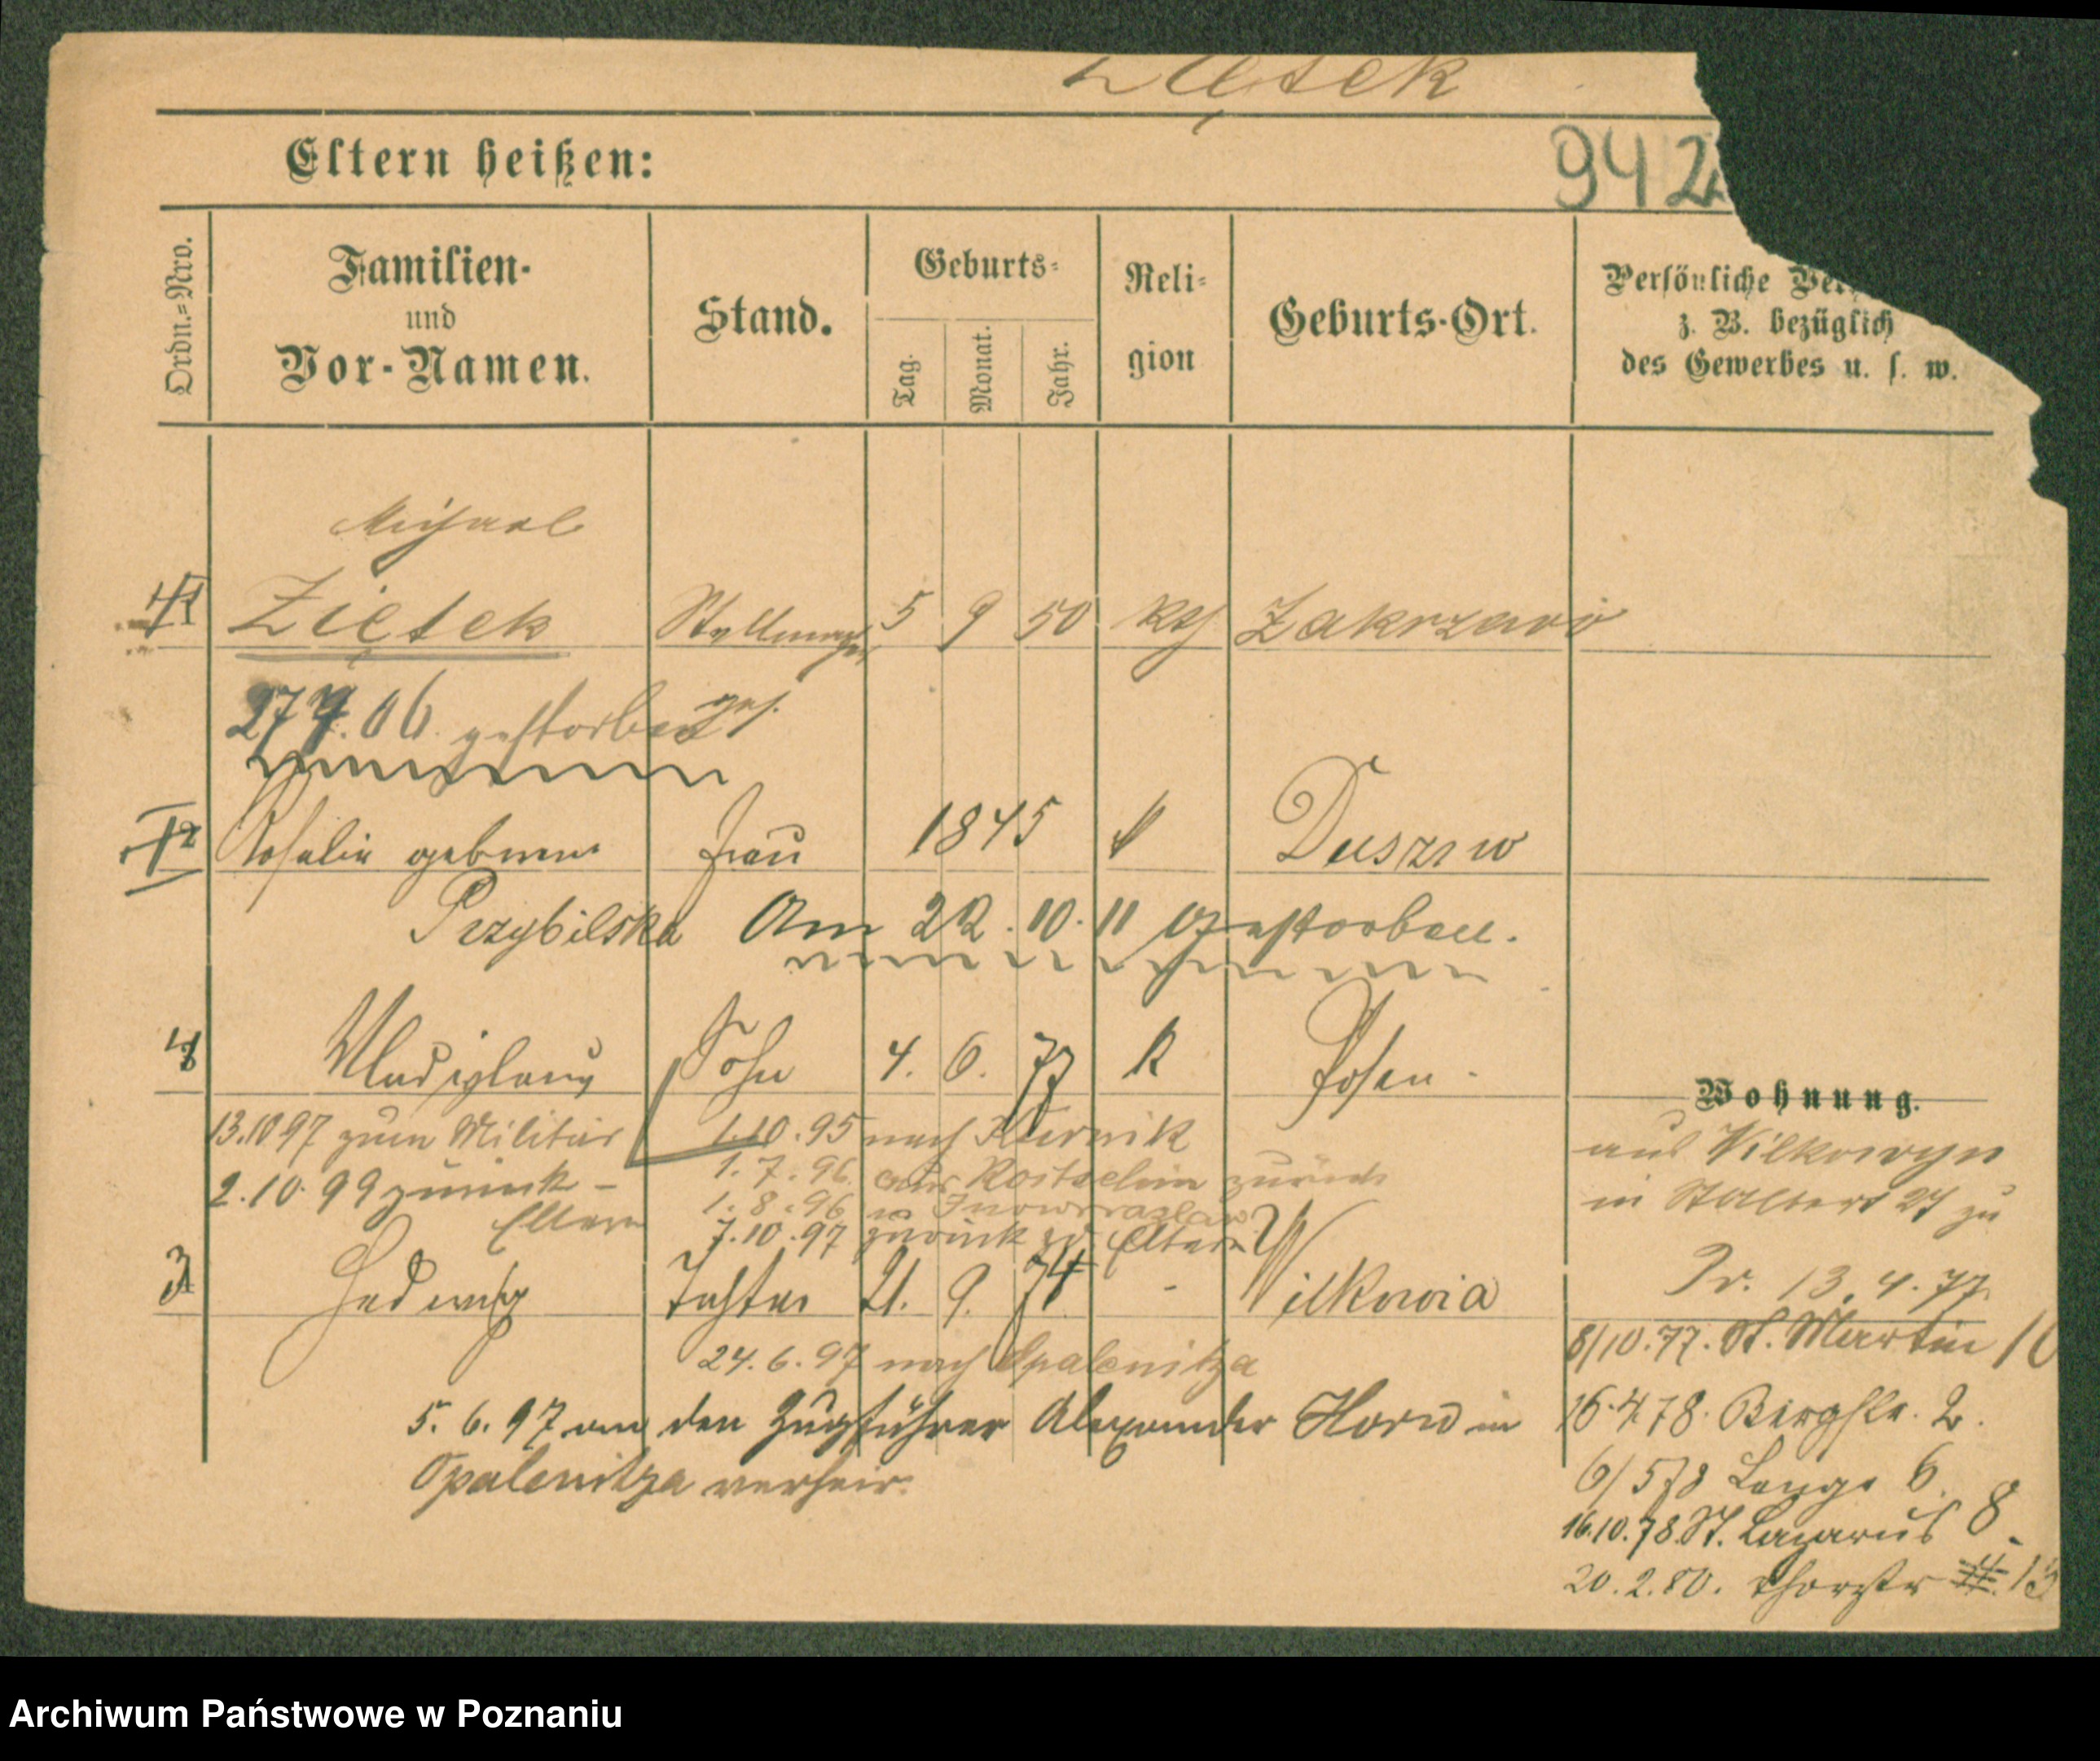 Ziętek
Eltern heißen:
942
Ordn.=Nro.
Familien-
und
Vor-Namen.
Stand.
Geburts-
Tag.
Monat.
Jahr.
Reli-
gion
Geburts-Ort.
Persönliche Ver
z. B. bezüglich
des Gewerbes u. s. w.
Michael
1 Ziętek Stellmacher 5 9 50 kth Zakrzewo
ges.
27 7. 06. gestorben
2 Rosalie geborene Frau 1845 k Duszno
Przybilska Am 22.10.11 gestorben.
Wladislaus Sohn 4. 6. 77 k Posen.
Wohnung.
13.10 97 zum Militär 1.10.95 nach Kurnik
aus Wilkowyja
1.7.96. aus zurück
2.10.99 zurück -
in 24 zu
1.8.96 n Inowrazlaw
Eltern 7.10.97 zurück zu Eltern
3 Hedwig Tochter 21. 9. 74 - Wilkowia
Pr. 13.4.77.
24.6.97 nach Opalenitza
8/10.77. St. Martin
5. 6. 97 an den Zugführer Alexander Horn in
16.4.78. Bergstr. 2.
Opalenitza verheir.
6/5 78 Lange 6.
16.10.78. St. Lazarus 8.
20.2.80. Thorstr 13
Archiwum Państwowe w Poznaniu